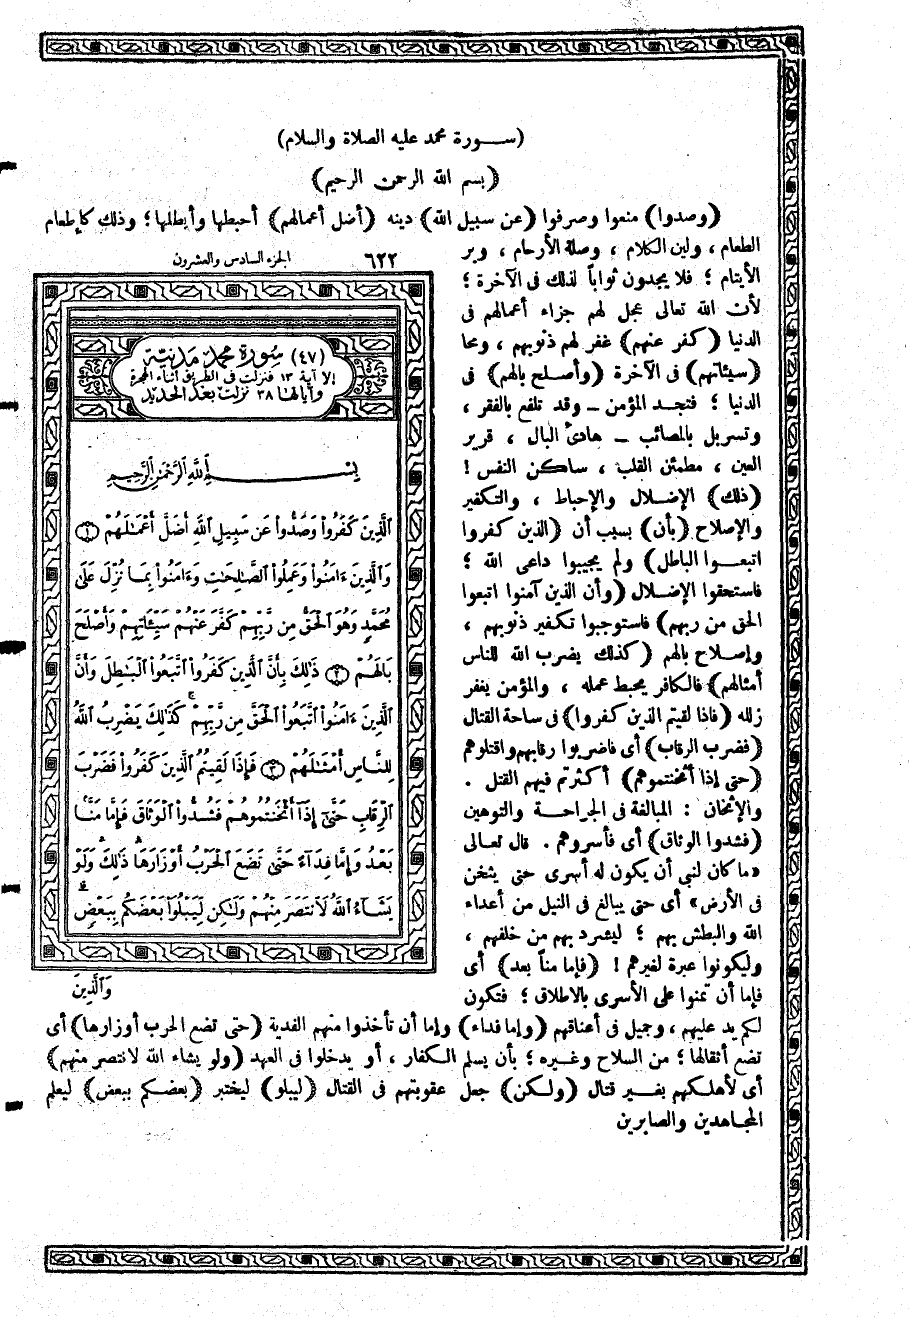 (سـورة محمد عليه الصلاة والسلام)
(بسم الله الرحمن الرحيم)
(وصدوا) منعوا وصرفوا (عن سبيل الله) دينه (أضل أعمالهم) أحبطها وأبطلها؛ وذلك كإطعام
الطعام، ولين الكلام، وصلة الأرحام، وبر
الأيتام؛ فلا يجدون ثواباً لذلك فى الآخرة؛
لأن الله تعالى عجل لهم جزاء أعمالهم فى
الدنيا (كفر عنهم) غفر لهم ذنوبهم، ومحا
(سيئاتهم) فى الآخرة (وأصلح بالهم) فى
الدنيا؛ فتجد المؤمن ــ وقد تلفع بالفقر،
وتسربل بالمصائب ــ هادئ البال، قرير
العين، مطمئن القلب، ساكن النفس!
(ذلك) الإضلال والإحباط، والتكفير
والإصلاح (بأن) بسبب أن (الذين كفروا
اتبعوا الباطل) ولم يجيبوا داعى الله؛
فاستحقوا الإضلال (وأن الذين آمنوا اتبعوا
الحق من ربهم) فاستوجبوا تكفير ذنوبهم،
وإصلاح بالهم (كذلك يضرب الله للناس
أمثالهم) فالكافر يحبط عمله، والمؤمن يغفر
زلله (فاذا لقيتم الذين كفروا) فى ساحة القتال
(فضرب الرقاب) أى فاضربوا رقابهم واقتلوهم
(حتى إذا أثخنتموهم) أكثرتم فيهم القتل.
والإثخان: المبالغة فى الجراحة والتوهين
(فشدوا الوثاق) أى فأسروهم. قال تعالى
«ما كان لنبى أن يكون له أسرى حتى يثخن
فى الأرض» أى حتى يبالغ فى النيل من أعداء
الله والبطش بهم؛ ليشرد بهم من خلفهم،
وليكونوا عبرة لغيرهم! (فإما مناً بعد) أى
فإما أن تمنوا على الأسرى بالاطلاق؛ فتكون
لكم يد عليهم، وجميل فى أعناقهم (وإما فداء) وإما أن تأخذوا منهم الفدية (حتى تضع الحرب أوزارها) أى
تضع أثقالها؛ من السلاح وغيره؛ بأن يسلم الكفار، أو يدخلوا فى العهد (ولو يشاء الله لانتصر منهم)
أى لأهلكهم بغير قتال (ولكن) جعل عقوبتهم فى القتال (ليبلو) ليختبر (بعضكم ببعض) ليعلم
المجاهدين والصابرين
الجزء السادس والعشرون
٦٢٢
(٤٧) سورة محمد مدنية
إلا آية ١٣ فنزلت فى الطريق أثناء الهجرة
وآياتها ٣٨ نزلت بعد الحديد
بِسْمِ ٱللَّهِ ٱلرَّحْمَٰنِ ٱلرَّحِيمِ
ٱلَّذِينَ كَفَرُوا۟ وَصَدُّوا۟ عَن سَبِيلِ ٱللَّهِ أَضَلَّ أَعْمَـٰلَهُمْ ١
وَٱلَّذِينَ ءَامَنُوا۟ وَعَمِلُوا۟ ٱلصَّـٰلِحَـٰتِ وَءَامَنُوا۟ بِمَا نُزِّلَ عَلَىٰ
مُحَمَّدٍ وَهُوَ ٱلْحَقُّ مِن رَّبِّهِمْ كَفَّرَ عَنْهُمْ سَيِّـَٔاتِهِمْ وَأَصْلَحَ
بَالَهُمْ ٢ ذَٰلِكَ بِأَنَّ ٱلَّذِينَ كَفَرُوا۟ ٱتَّبَعُوا۟ ٱلْبَـٰطِلَ وَأَنَّ
ٱلَّذِينَ ءَامَنُوا۟ ٱتَّبَعُوا۟ ٱلْحَقَّ مِن رَّبِّهِمْ ۚ كَذَٰلِكَ يَضْرِبُ ٱللَّهُ
لِلنَّاسِ أَمْثَـٰلَهُمْ ٣ فَإِذَا لَقِيتُمُ ٱلَّذِينَ كَفَرُوا۟ فَضَرْبَ
ٱلرِّقَابِ حَتَّىٰٓ إِذَآ أَثْخَنتُمُوهُمْ فَشُدُّوا۟ ٱلْوَثَاقَ فَإِمَّا مَنَّۢا
بَعْدُ وَإِمَّا فِدَآءً حَتَّىٰ تَضَعَ ٱلْحَرْبُ أَوْزَارَهَا ۚ ذَٰلِكَ ۖ وَلَوْ
يَشَآءُ ٱللَّهُ لَٱنتَصَرَ مِنْهُمْ وَلَـٰكِن لِّيَبْلُوَا۟ بَعْضَكُم بِبَعْضٍ ۗ
وَٱلَّذِينَ